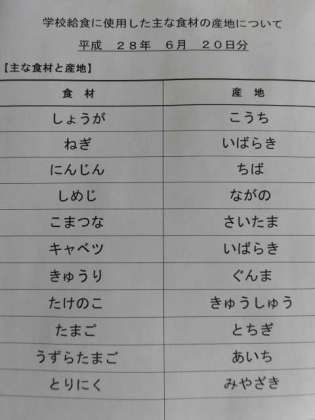 学校給食に使用した主な食材の産地について
平成 28年 6月 20日分
【主な食材と産地】
食 材 産 地
しょうが こうち
ねぎ いばらき
にんじん ちば
しめじ ながの
こまつな さいたま
キャベツ いばらき
きゅうり ぐんま
たけのこ きゅうしゅう
たまご とちぎ
うずらたまご あいち
とりにく みやざき